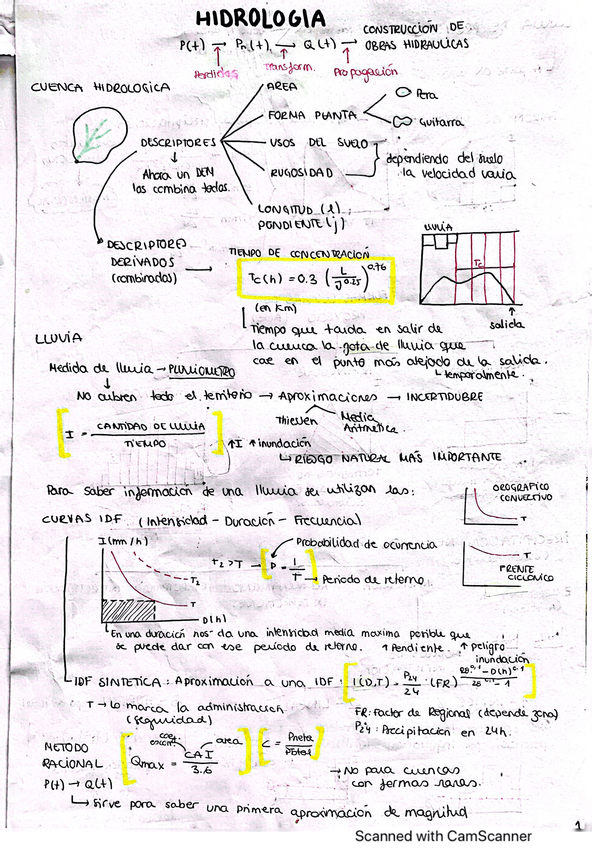 HIDROLOGIA
P(t) → Pn(t) → Q(t) → CONSTRUCCIÓN DE OBRAS HIDRAULICAS
Perdidas Transform. Propagación
CUENCA HIDROLOGICA
AREA
FORMA PLANTA
Pera
Guitarra
DESCRIPTORES
USOS DEL SUELO
RUGOSIDAD
dependiendo del suelo
la velocidad varia
Ahora un DEM
las combina todas.
LONGITUD (l)
PENDIENTE (j)
DESCRIPTORES
DERIVADOS
(combinados)
TIEMPO DE CONCENTRACIÓN
Tc(h) = 0.3 (L / J^0.25)^0.76
(en Km)
LLUVIA
Tc
salida
Tiempo que tarda en salir de
la cuenca la gota de lluvia que
cae en el punto más alejado de la salida.
temporalmente.
LLUVIA
Medida de lluvia → PLUVIOMETRO
No cubren todo el territorio → Aproximaciones → INCERTIDUMBRE
Thiessen Media
Aritmetica.
I = CANTIDAD DE LLUVIA / TIEMPO
↑I ↑inundación
↳ RIESGO NATURAL MÁS IMPORTANTE
Para saber informacion de una lluvia se utilizan las:
CURVAS IDF (Intensidad - Duración - Frecuencia)
OROGRAFICO
CONVECTIVO
T
I (mm/h)
T2
T
D(h)
T2 > T → P = 1/T → Periodo de retorno
Probabilidad de ocurrencia
T
FRENTE
CICLONICO
En una duración nos da una intensidad media maxima posible que
se puede dar con ese periodo de retorno. ↑Pendiente. ↑peligro
inundación
IDF SINTETICA: Aproximación a una IDF: I(D,T) = P24/24 · (FR)^(28^0.1 - D(h)^0.1 / 28^0.1 - 1)
T → lo marca la administración
(seguridad)
FR: Factor de Regional (depende zona)
P24: Precipitación en 24h.
METODO
RACIONAL
coef.
escorr.
area
Qmax = CAI / 3.6
C = Pneta / Ptotal
P(t) → Q(t)
→ No para cuencas
con formas raras.
↳ Sirve para saber una primera aproximación de magnitud
1
Scanned with CamScanner